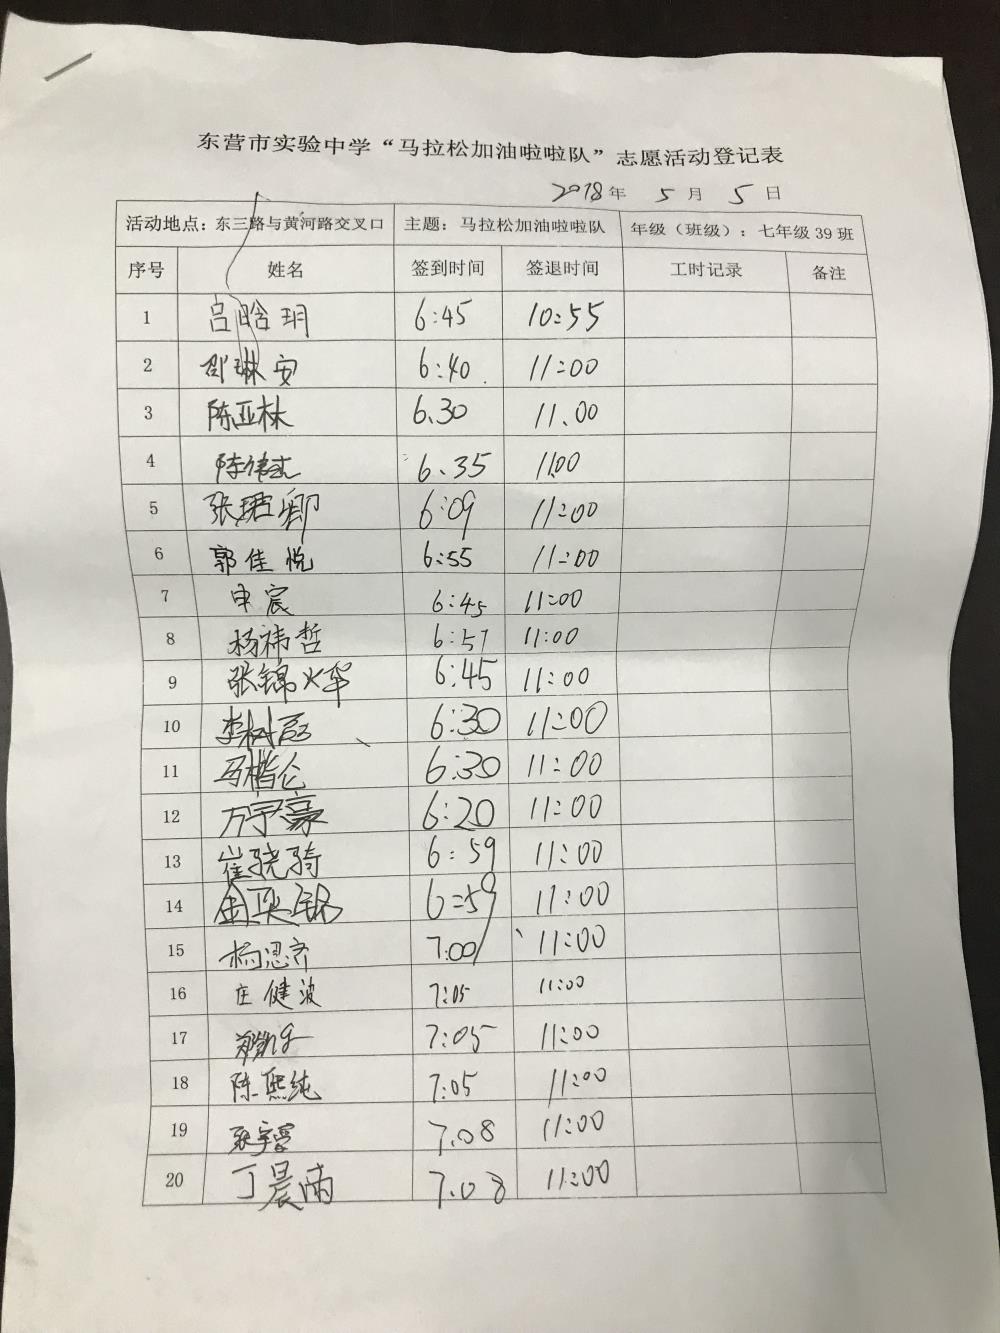 东营市实验中学“马拉松加油啦啦队”志愿活动登记表
2018年 5月 5日
活动地点：东三路与黄河路交叉口 主题：马拉松加油啦啦队 年级（班级）：七年级39班
序号 姓名 签到时间 签退时间 工时记录 备注
1 吕晗玥 6:45 10:55
2 邵琳安 6:40 11:00
3 陈亚林 6.30 11.00
4 陈伟杰 6.35 11.00
5 张珺卿 6:09 11:00
6 郭佳悦 6:55 11:00
7 申宸 6:45 11:00
8 杨祎哲 6:57 11:00
9 张锦烨 6:45 11:00
10 李树 6:30 11:00
11 马楷仑 6:30 11:00
12 万宇豪 6:20 11:00
13 崔骁骑 6:59 11:00
14 6:59 11:00
15 杨思齐 7:00 11:00
16 庄健波 7:05 11:00
17 郑凯 7:05 11:00
18 陈熙纯 7:05 11:00
19 张宇 7.08 11:00
20 丁晨雨 7.08 11:00